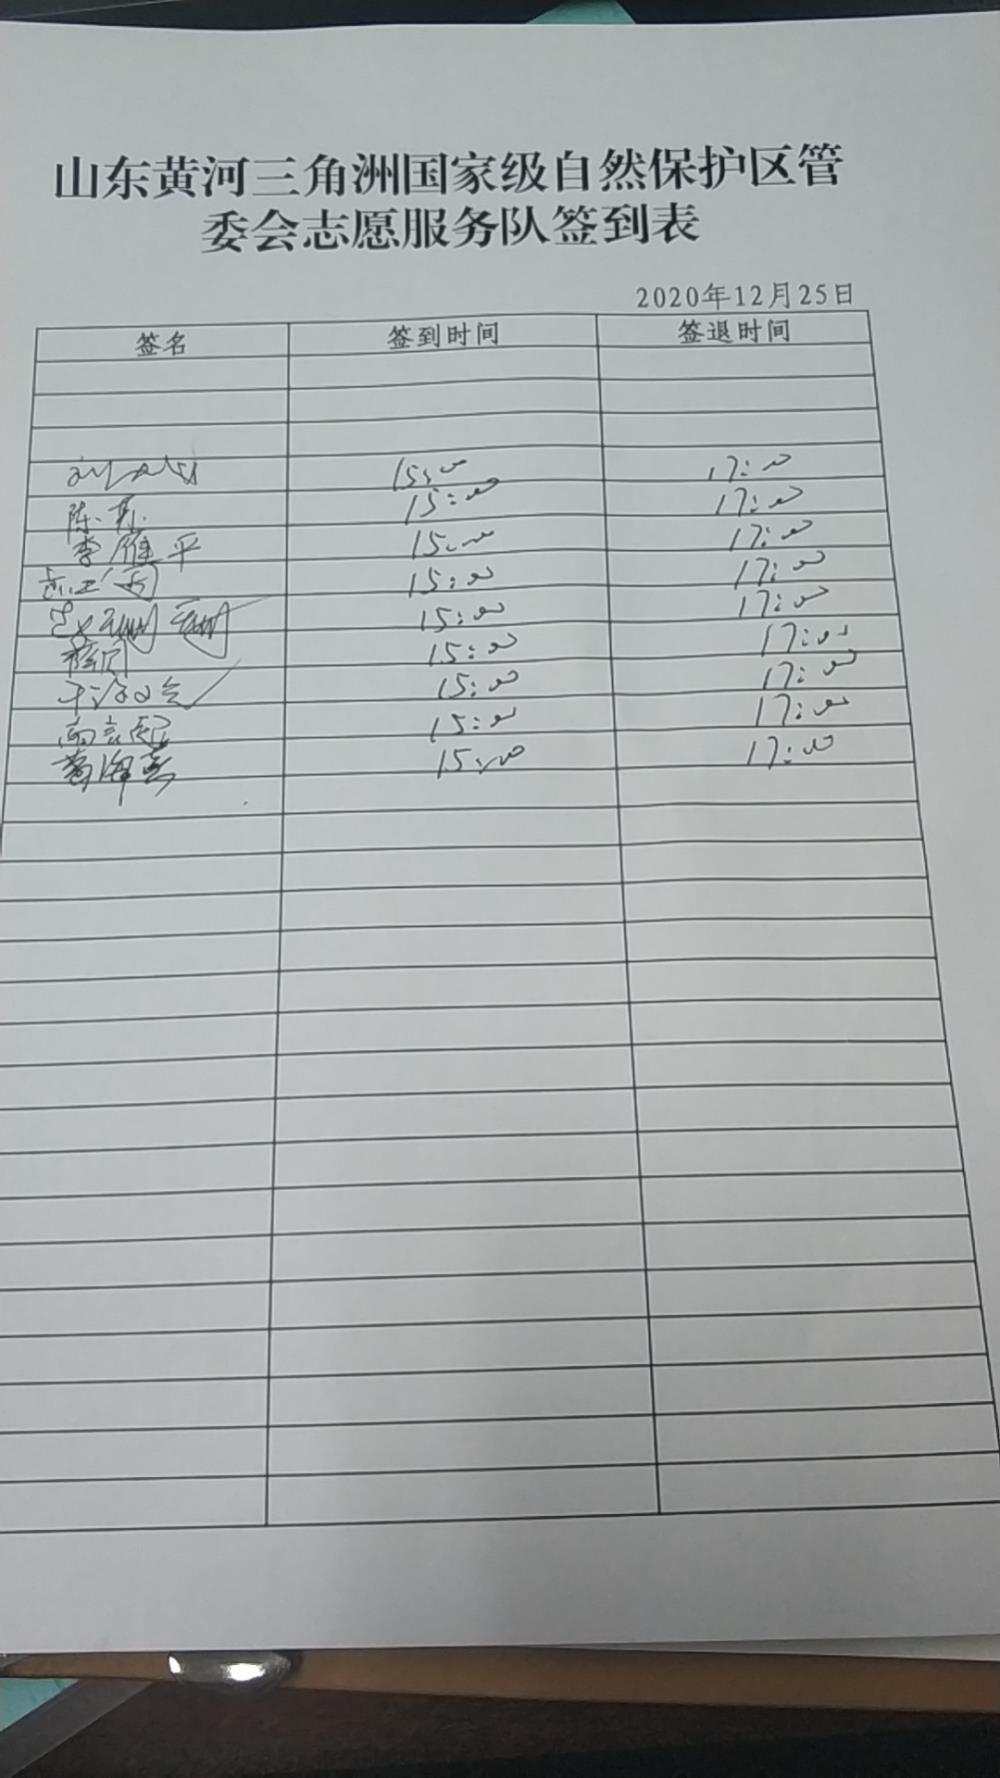 山东黄河三角洲国家级自然保护区管
委会志愿服务队签到表
2020年12月25日
签名 签到时间 签退时间
15:00 17:00
陈 15:00 17:00
李雁平 15:00 17:00
15:00 17:00
15:00 17:00
15:00 17:00
15:00 17:00
高 15:00 17:00
海 15:00 17:00